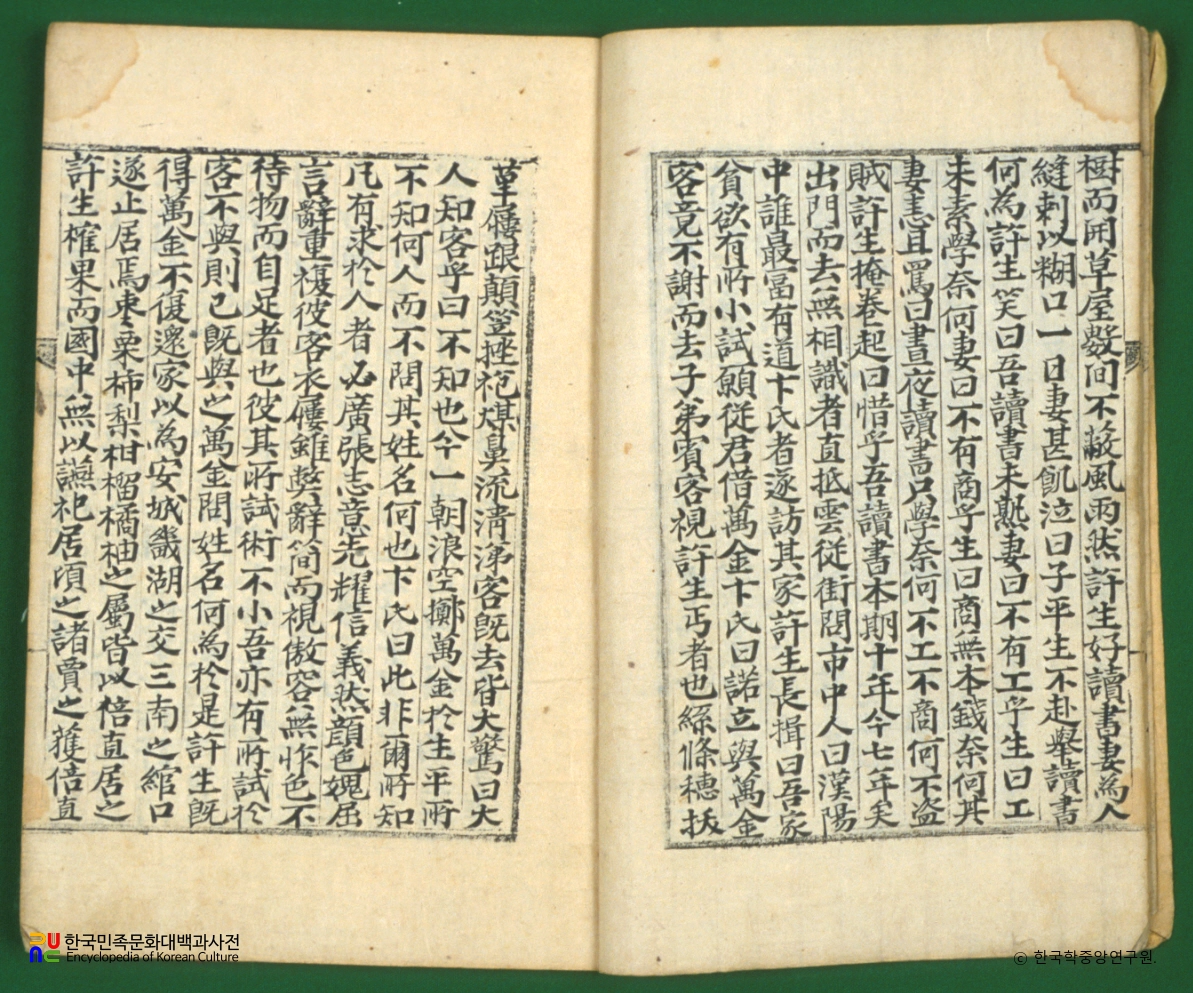 樹而開草屋數间不蔽風雨然許生好讀書妻為人
縫刺以糊口一日妻甚飢泣曰子平生不赴舉讀書
何為許生笑曰吾讀書未熟妻曰不有工乎生曰工
未素學奈何妻曰不有商乎生曰商無本錢奈何其
妻恚且罵曰晝夜讀書只學奈何不工不商何不盗
賊許生掩卷起曰惜乎吾讀書本期十年今七年矣
出門而去無相識者直抵雲従街問市中人曰漢陽
中誰最富有道卞氏者遂訪其家許生長揖曰吾家
貧欲有所小試願従君借萬金卞氏曰諾立與萬金
客竟不謝而去子弟賓客視許生丐者也絲條穗拔
草屨跟顛笠挫袍煤鼻流淸涕客旣去皆大驚曰大
人知客乎曰不知也今一朝浪空擲萬金於生平所
不知何人而不問其姓名何也卞氏曰此非爾所知
凡有求於人者必廣張志意先耀信義然顔色媿屈
言辭重複彼客衣屨雖弊辭简而視傲容無怍色不
待物而自足者也彼其所試術不小吾亦有所試於
客不與則已旣與之萬金問姓名何為於是許生旣
得萬金不復還家以為安城畿湖之交三南之綰口
遂止居焉棗栗柿梨柑榴橘柚之屬皆以倍直居之
許生榷果而國中無以讌祀居頃之諸賈之獲倍直
한국민족문화대백과사전
Encyclopedia of Korean Culture
© 한국학중앙연구원.